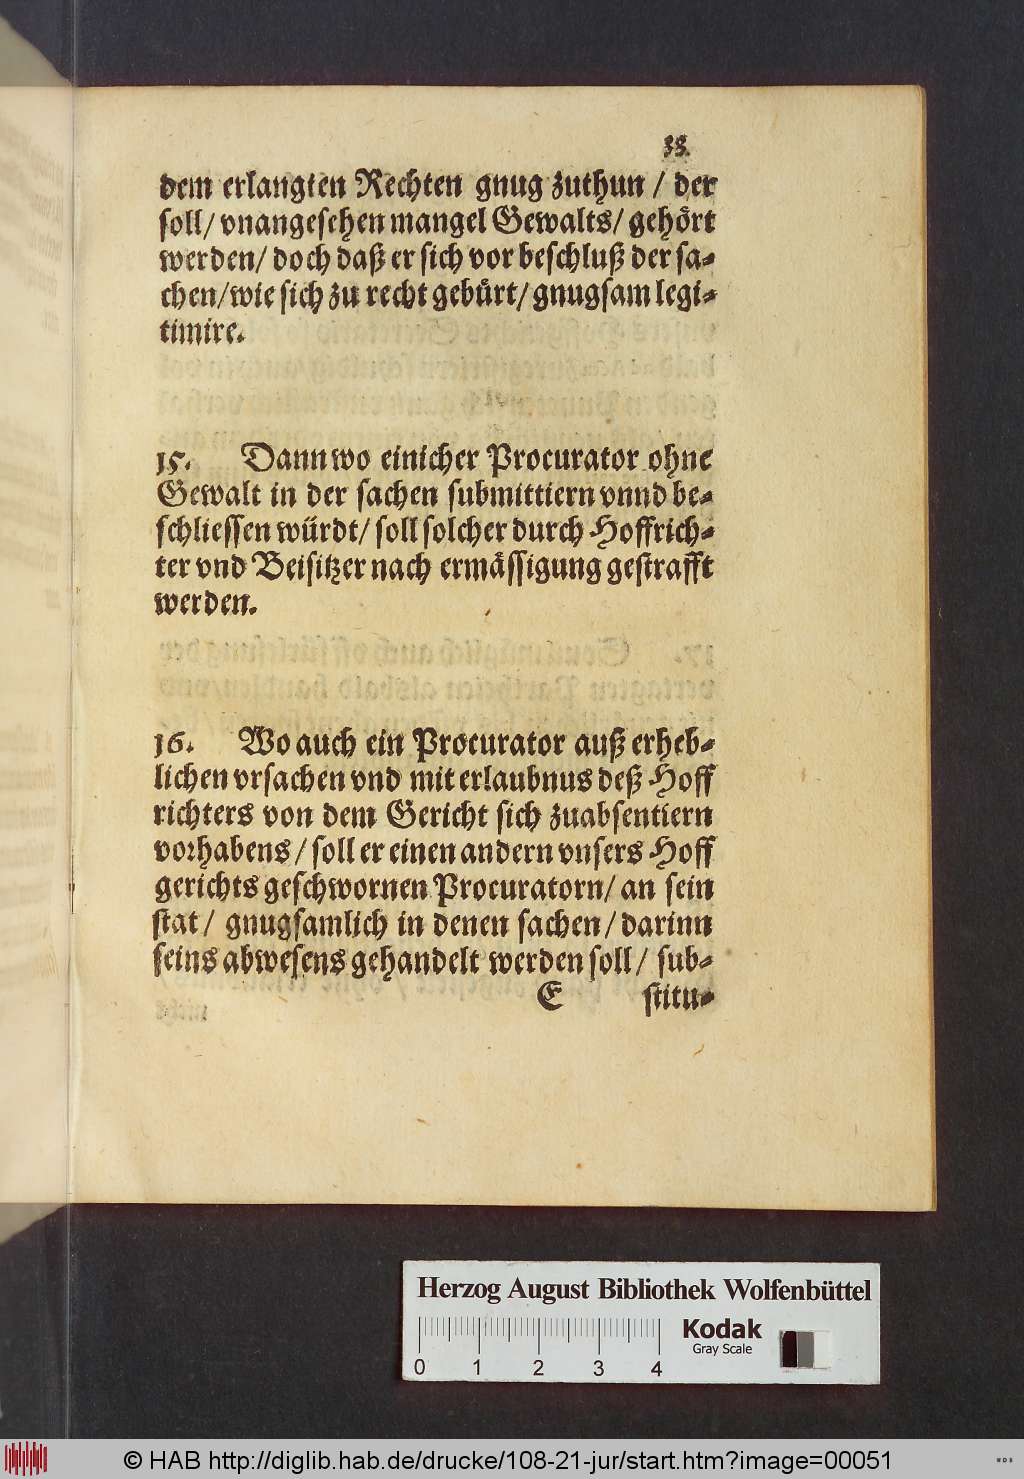 33.
dem erlangten Rechten gnug zuthun / der
soll/ vnangesehen mangel Gewalts/ gehört
werden/ doch daß er sich vor beschluß der sa-
chen/wie sich zu recht gebürt/ gnugsam legi-
timire.
15. Dann wo einicher Procurator ohne
Gewalt in der sachen submittiern vnnd be-
schliessen würdt/ soll solcher durch Hoffrich-
ter vnd Beisitzer nach ermässigung gestrafft
werden.
16. Wo auch ein Procurator auß erheb-
lichen vrsachen vnd mit erlaubnus deß Hoff
richters von dem Gericht sich zuabsentiern
vorhabens / soll er einen andern vnsers Hoff
gerichts geschwornen Procuratorn/ an sein
stat / gnugsamlich in denen sachen / darinn
seins abwesens gehandelt werden soll / sub-
E stitu-
Herzog August Bibliothek Wolfenbüttel
Kodak
Gray Scale
0 1 2 3 4
© HAB http://diglib.hab.de/drucke/108-21-jur/start.htm?image=00051